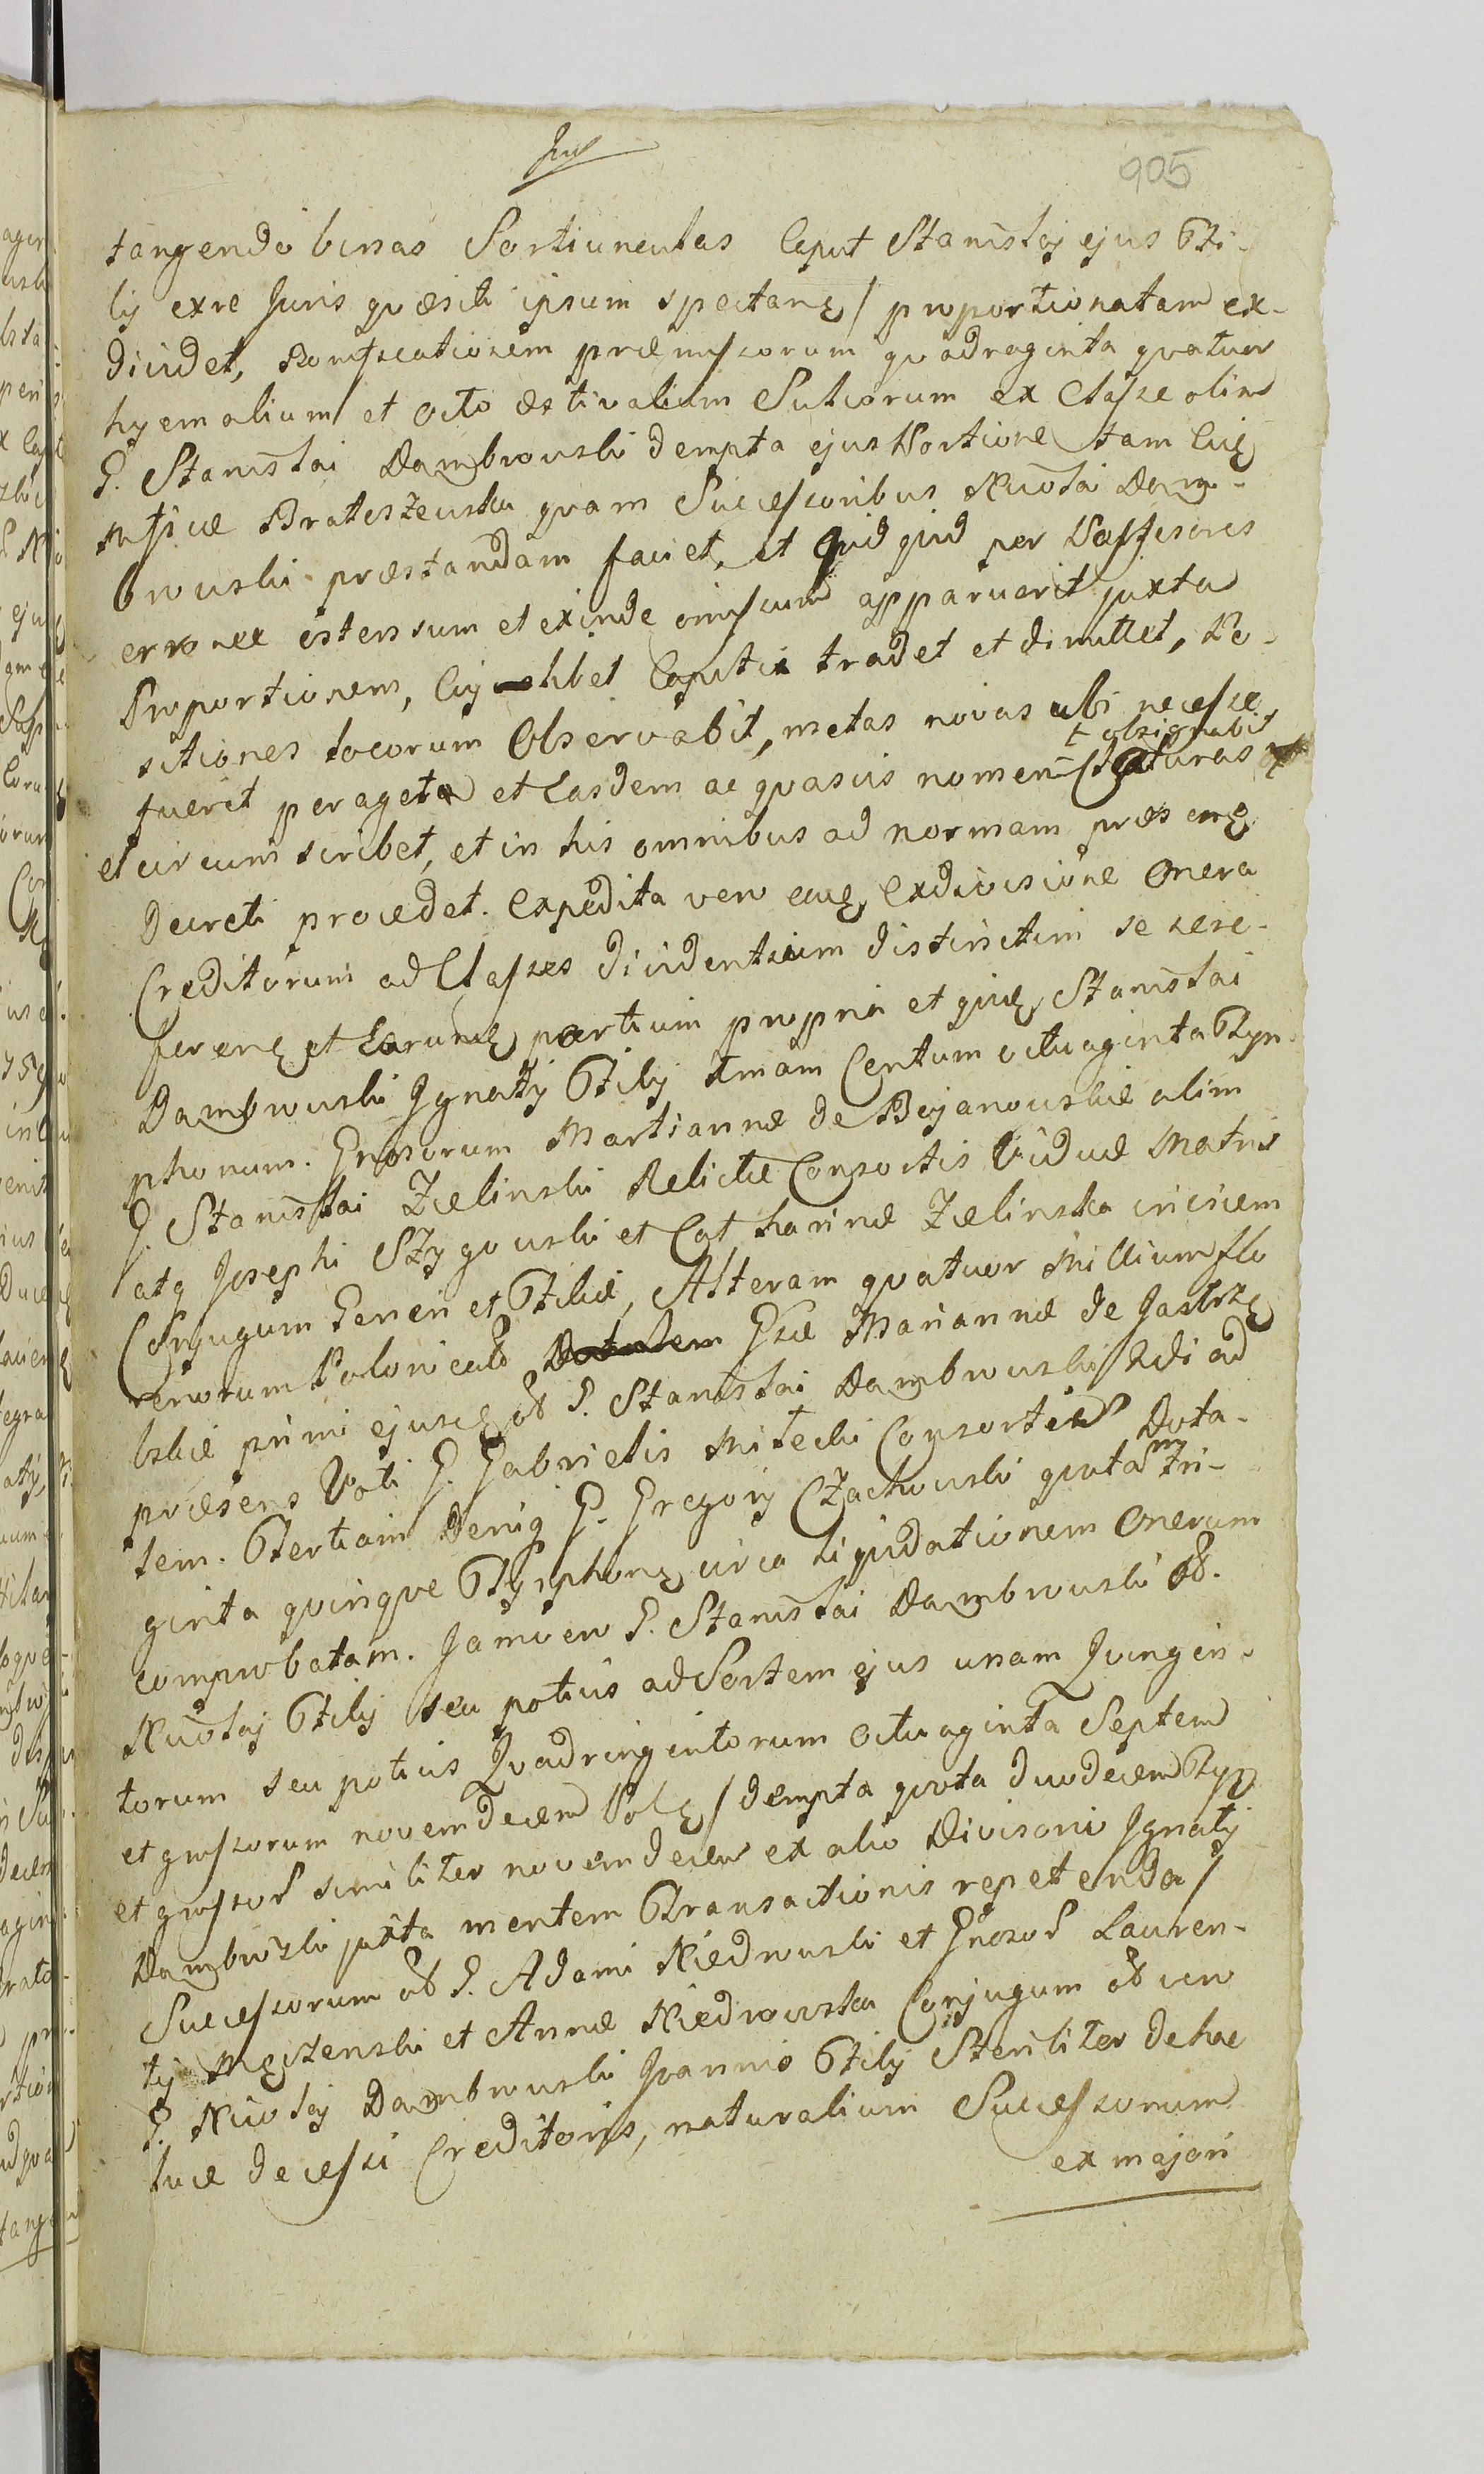 905
tangendo binas Sortiunculas Caput Stanislaj ejus Fi-
lij exre Juris qvæsiti ipsum spectanę / proportionatam ex-
dividet, Bonificationem præmissorum qvadraginta qvatuor
hyemalium et octo æstivalium Sulcorum ex Classe olim
G. Stanislai Dambrowski dempta ejus Portione tam
Msficæ Brateszewska qvam Successoribus Nicolai Dam-
browski præstandam faciet, et qvid qvid per Possessores
erronee ostensum et exinde omissum apparuerit juxta
Proportionem, Cujuslibet Capitis tradet et dimittet, Po-
sitiones locorum Observabit, metas novas ubi necesse
fuerit peraget et Easdem ac qvasvis nomenclaturas
t obsignabit
et circumscribet, et in his omnibus ad normam præs enę
Decreti procedet. Expedita vero eaję Exdivisione Onera
Creditorum ad Classes dividentium distinctim se rese-
ferenę et Earumę partium propria et qvię Stanislai
Dambrowski Jgnatij Filij Unam Centum octuaginta Tyn-
phonum. Gnosorum Martiannæ de Bojanowskie olim
G. Stanislai Zielinski Relictæ Consortis Viduæ Matris
atq Josephi Szygowski et Catharinæ Zielinska invicem
Conjugum Generi et Filiæ, Alteram qvatuor Millium flo
renorum Polonicald Gsæ Mariannæ de Jastrzę
bskie primi ejuscę od G. Stanislai Dambrowski 2di ad
præsens Voti G. Gabrielis Mitecki Consortis Dota-
lem. Tertiam deniq G. Gregorij Czachowski qvotam Tri-
ginta qvinqve Tynphonę circa liqvidationem Onerum
comprobatam. Jam vero G. Stanislai Dambrowski od.
Nicolaj Filij seu potius ad Sortem ejus unam Qvingen-
torum seu potius Qvadringentorum octuaginta Septem
et grossorum novemdecem Polę / dempta qvota duodecem Typ
et grossod similiter novemdecem ex alio Divisorio Jgnatij
Dambrowski juxta mentem Transactionis repetenda /
Successorum od G. Adami Niedrowski et Gnosod Lauren-
tij Męczenski et Annæ Niedrowska Conjugum od vero
G. Nicolaj Dambrowski Joannis Filij Steriliter de hac
luce decessi Creditoris, naturalium Successorum
ex majori